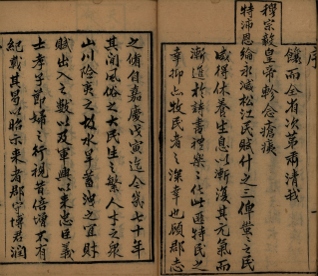 序
饑而全省次第肅清我
穆宗毅皇帝軫念瘡痍
特沛恩綸永減松江民賦什之三俾蚩蚩之民
咸得休養生息以漸復其元氣而
漸進於詩書禮樂之化此直特民之
幸抑亦牧民者之深幸也顧郡志
之脩自嘉慶戊寅迄今幾七十年
其間風俗之大民生之繁人士之衆
山川險夷之故水旱蓄洩之宜財
賦出入之數以及軍興以來忠臣義
士孝子節婦之行視昔倍增不有
紀載其曷以昭示來者郡守博君潤